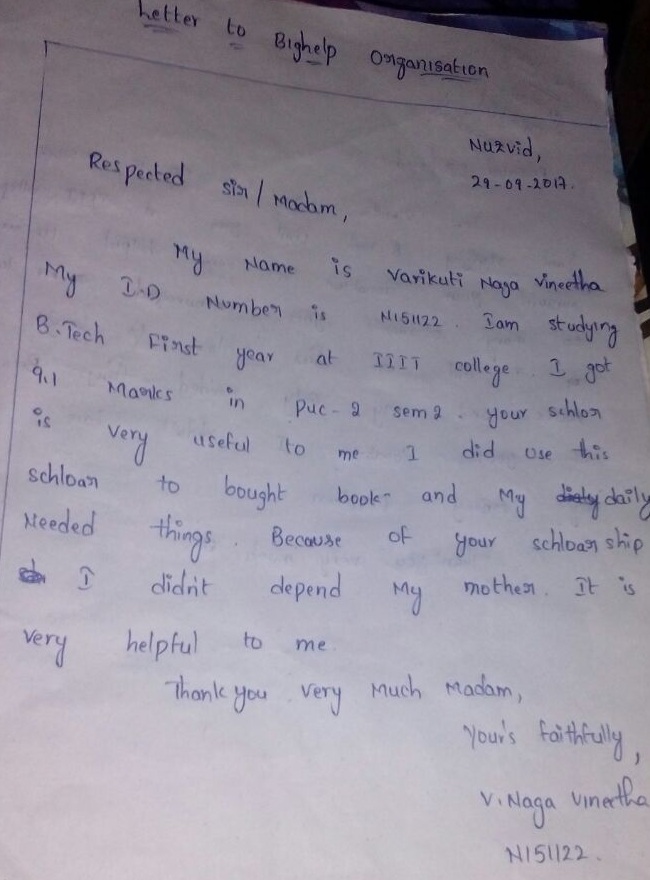 Letter to Bighelp Organisation
Nuzvid,
29-09-2017.
Respected sir/Madam,
My Name is Varikuti Naga Vineetha
My I.D Number is N151122. Iam studying
B.Tech First year at IIIT college. I got
9.1 Marks in puc-2 sem2. your schlor
is very useful to me I did use this
schloar to bought book- and My daily
Needed things. Because of your schloarship
I didn't depend My mother. It is
very helpful to me.
Thank you very Much Madam,
Your's faithfully,
V. Naga Vineetha
N151122.